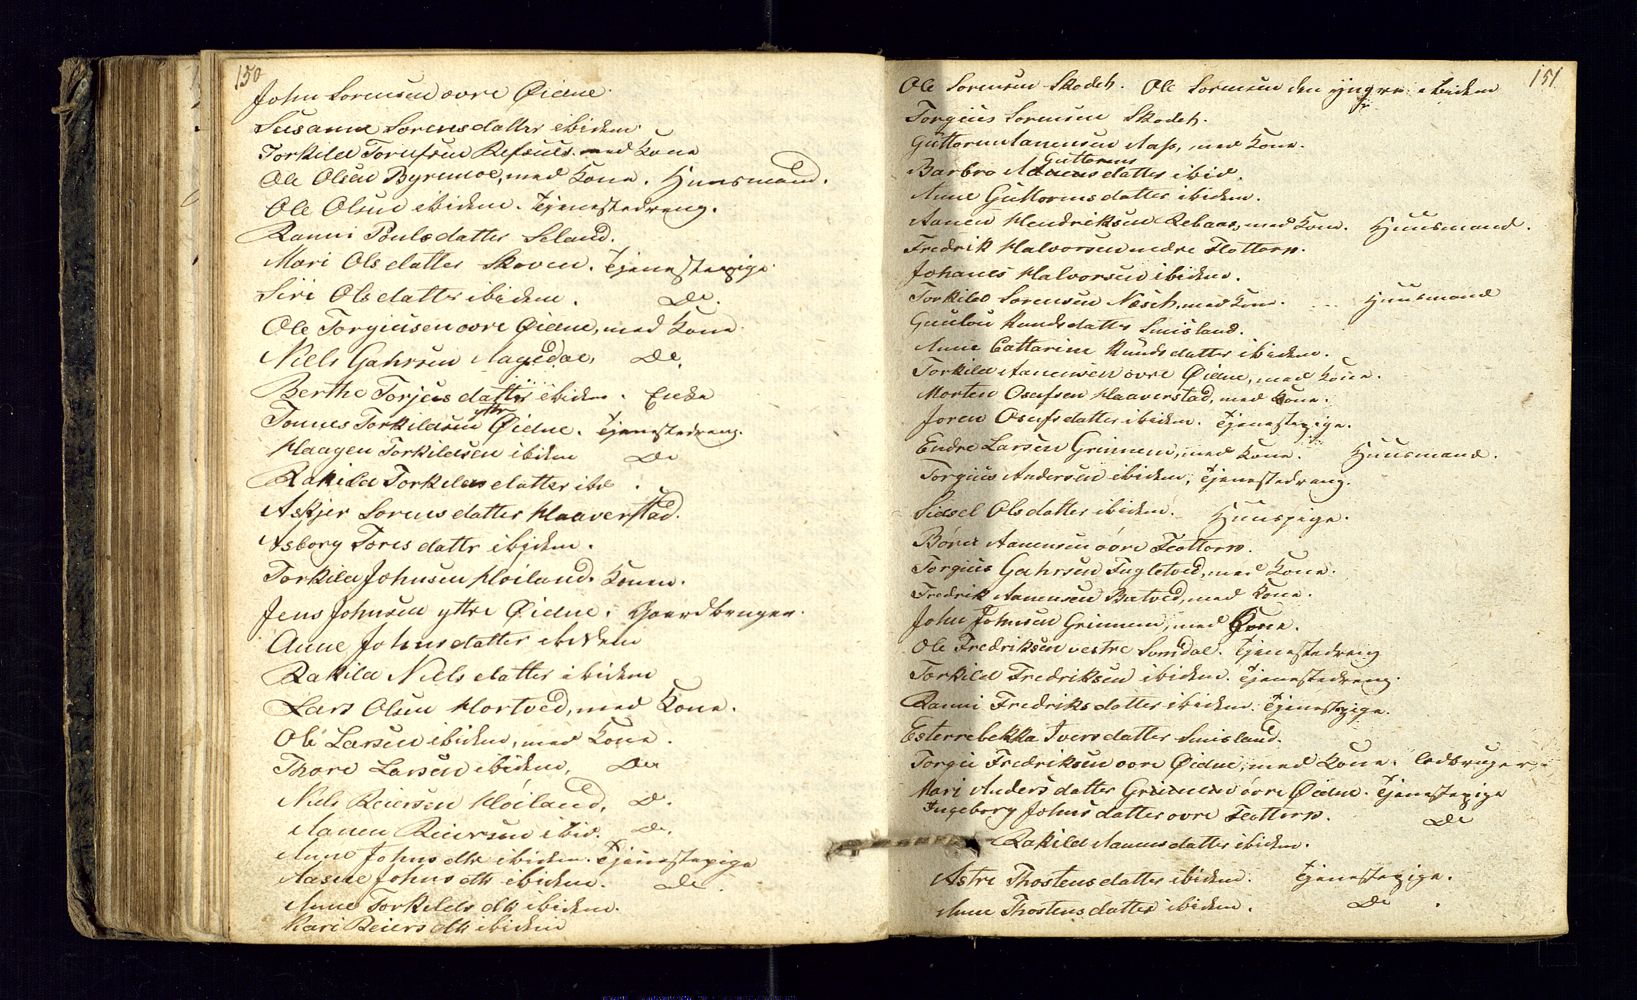 150
John Sorensen øvre Øidne.
Susanne Sorensdatter ibidem
Torkild Torufsen Refsnes med Kone
Ole Olsen Byremoe, med Kone. Huusmand.
Ole Olsen ibidem. Tjenestedreng.
Ranni Poulsdatter Seland.
Mari Olsdatter Skoven. Tjenestepige
Siri Olsdatter ibidem. Do.
Ole Torgiusen øvre Øidne, med Kone
Niels Gahrsen Aagedal, Do.
Berthe Torjusdatter ibidem. Enke
Tonnes Torkildsen yttre Øidne. Tjenestedreng.
Haagen Torkildsen ibidem Do
Rakild Torkildsdatter ibd.
Askjer Sorensdatter Haaverstad.
Asborg Toresdattr ibidem.
Torkild Johnsen Høiland. Konen.
Jens Johnsen yttre Øidne. Gaardbruger.
Anne Johnsdatter ibidem
Rakild Nielsdatter ibidem
Lars Olsen Hortved, med Kone.
Ole Larsen ibidem, med Kone.
Thore Larsen ibidem, Do
Niels Reiersen Høiland, D.
Aanen Reiersen ibid. Do.
Anne Johns dtr ibidem. Tjenestepige
Aasne Johns dtr ibidem. Do.
Anne Torkilds dtr ibidem.
Kari Reiers dtr ibidem
151
Ole Sorensen Skodeh. Ole Sorensen den yngre ibidem
Torgius Sorensen Skodeh.
Guttorm Aanensen Aas, med Kone.
Barbro Guttorms datter ibid.
Anne Guttormsdatter ibidem.
Aanen Hendriksen Rebaas, med Kone. Huusmand.
Fredrik Halvorsen nedre Flottorp.
Johanes Halvorsen ibidem.
Torkild Sorensen Næseh, med Kone. Huusmand
Gunlou Knudsdatter Smisland.
Anne Cattarine Knudsdatter ibidem.
Torkild Aanensen øvre Øidne, med Kone.
Morten Osufsen Haaverstad, med Kone.
Joren Osufsdatter ibidem. Tjenestepige.
Endre Larsen Grinnem, med Kone. Huusmand.
Torgius Andersen ibidem, Tjenestedreng.
Sidsel Olsdatter ibidem. Huuspige.
Børie Aanensen øvre Flottorp.
Torgius Gahrsen Fugletved, med Kone.
Fredrik Aanensen Bretved, med Kone.
John Johnsen Grinnem, med Kone.
Ole Fredriksen vestre Somdal. Tjenestedreng
Torkild Fredriksen ibidem. Tjenestedreng.
Ranni Fredriksdatter ibidem. Tjenestepige.
Esterrebekka Iversdatter Smisland.
Torgie Fredriksen øvre Øidne, med Kone.
Mari Andersdatter øvre Øidne. Tjenestepige
Ingeborg Johnsdatter øvre Flottorp. Do
Rakild Aanensdatter ibidem.
Astri Thostensdatter ibidem. Tjenestepige.
Anne Thostensdatter ibidem. Do.